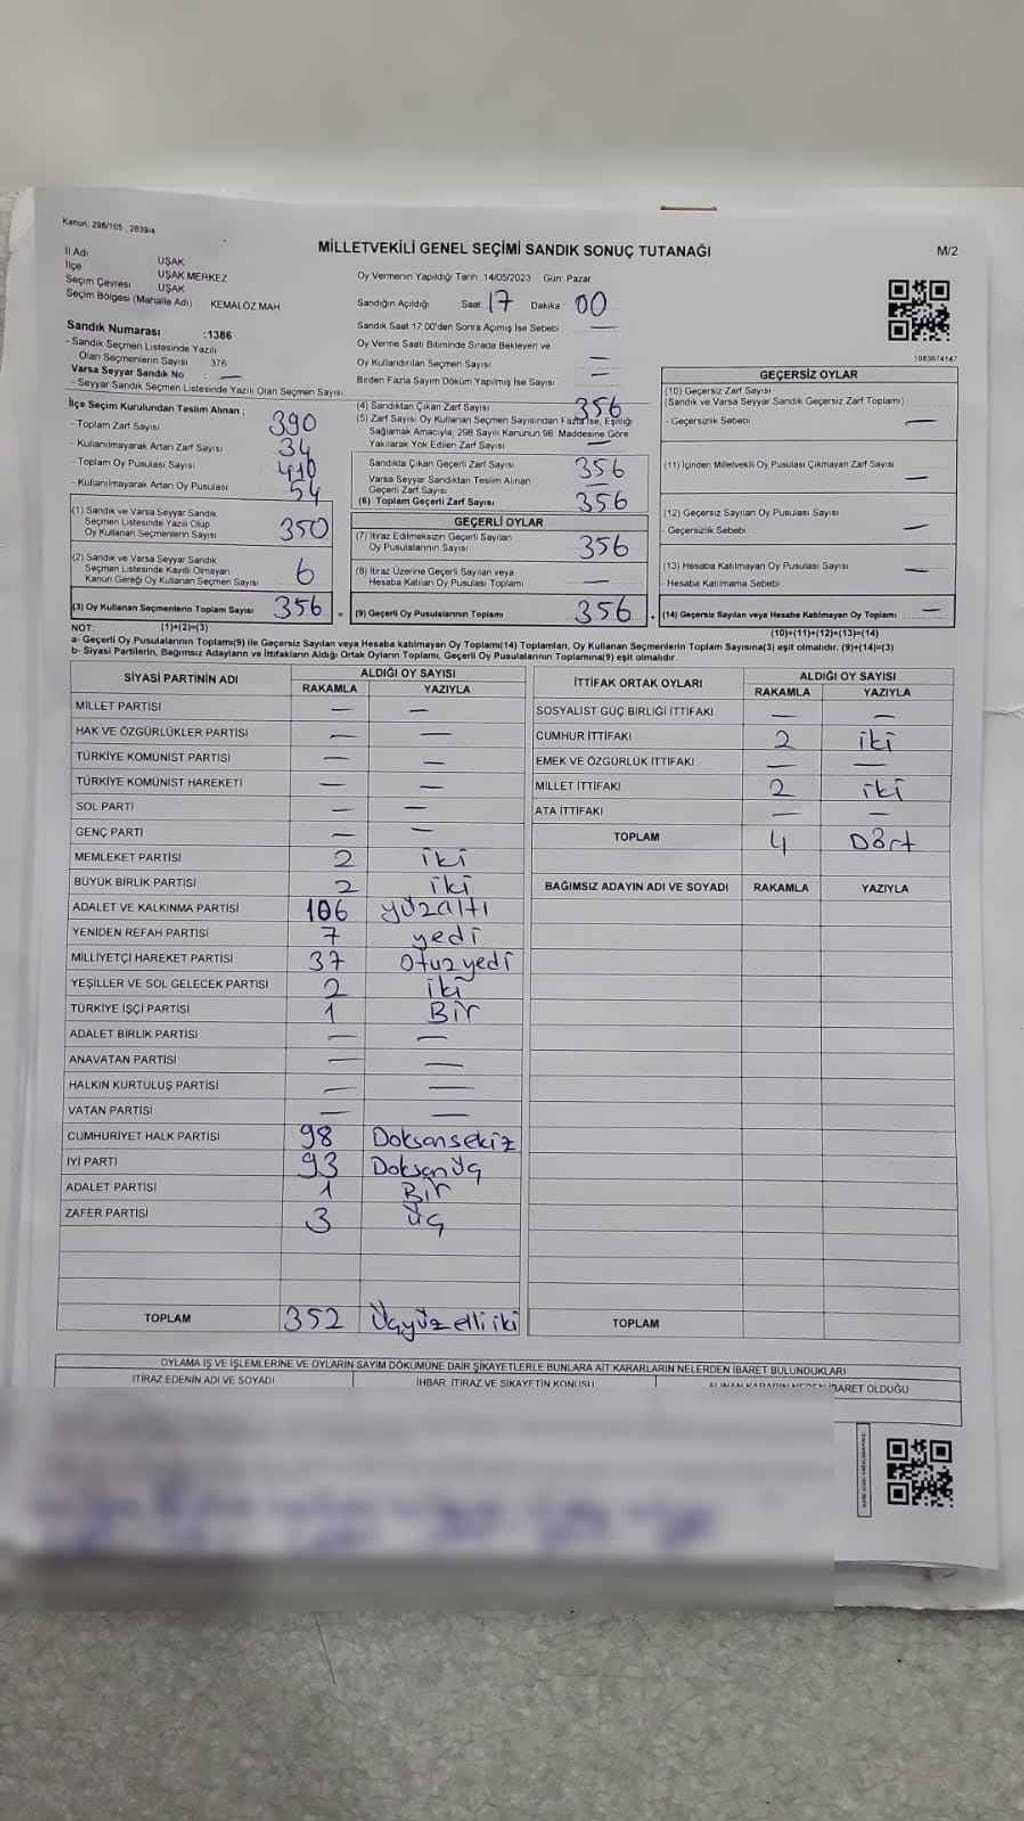 Kanun: 298/105 , 2839/4
MİLLETVEKİLİ GENEL SEÇİMİ SANDIK SONUÇ TUTANAĞI
M/2
İl Adı UŞAK
İlçe UŞAK MERKEZ
Seçim Çevresi UŞAK
Seçim Bölgesi (Mahalle Adı) KEMALÖZ MAH
Sandık Numarası :1386
- Sandık Seçmen Listesinde Yazılı
Olan Seçmenlerin Sayısı 376
Varsa Seyyar Sandık No : —
- Seyyar Sandık Seçmen Listesinde Yazılı Olan Seçmen Sayısı:
Oy Vermenin Yapıldığı Tarih: 14/05/2023 Gün: Pazar
Sandığın Açıldığı Saat: 17 Dakika 00
Sandık Saat 17:00'den Sonra Açılmış İse Sebebi —
Oy Verme Saati Bitiminde Sırada Bekleyen ve
Oy Kullandırılan Seçmen Sayısı —
Birden Fazla Sayım Döküm Yapılmış İse Sayısı —
1083674147
İlçe Seçim Kurulundan Teslim Alınan ;
- Toplam Zarf Sayısı 390
- Kullanılmayarak Artan Zarf Sayısı 34
- Toplam Oy Pusulası Sayısı 410
- Kullanılmayarak Artan Oy Pusulası 54
(1) Sandık ve Varsa Seyyar Sandık
Seçmen Listesinde Yazılı Olup
Oy Kullanan Seçmenlerin Sayısı 350
(2) Sandık ve Varsa Seyyar Sandık
Seçmen Listesinde Kayıtlı Olmayan
Kanun Gereği Oy Kullanan Seçmen Sayısı 6
(3) Oy Kullanan Seçmenlerin Toplam Sayısı 356
(4) Sandıktan Çıkan Zarf Sayısı 356
(5) Zarf Sayısı Oy Kullanan Seçmen Sayısından Fazla İse, Eşitliği
Sağlamak Amacıyla, 298 Sayılı Kanunun 98. Maddesine Göre
Yakılarak Yok Edilen Zarf Sayısı —
Sandıkta Çıkan Geçerli Zarf Sayısı 356
Varsa Seyyar Sandıktan Teslim Alınan
Geçerli Zarf Sayısı —
(6) Toplam Geçerli Zarf Sayısı 356
GEÇERLİ OYLAR
(7) İtiraz Edilmeksizin Geçerli Sayılan
Oy Pusulalarının Sayısı 356
(8) İtiraz Üzerine Geçerli Sayılan veya
Hesaba Katılan Oy Pusulası Toplamı —
(9) Geçerli Oy Pusulalarının Toplamı 356
GEÇERSİZ OYLAR
(10) Geçersiz Zarf Sayısı
(Sandık ve Varsa Seyyar Sandık Geçersiz Zarf Toplamı) :
- Geçersizlik Sebebi —
(11) İçinden Milletvekili Oy Pusulası Çıkmayan Zarf Sayısı —
(12) Geçersiz Sayılan Oy Pusulası Sayısı
Geçersizlik Sebebi —
(13) Hesaba Katılmayan Oy Pusulası Sayısı —
Hesaba Katılmama Sebebi
(14) Geçersiz Sayılan veya Hesaba Katılmayan Oy Toplamı —
NOT: (1)+(2)=(3) (10)+(11)+(12)+(13)=(14)
a- Geçerli Oy Pusulalarının Toplamı(9) ile Geçersiz Sayılan veya Hesaba katılmayan Oy Toplamı(14) Toplamları, Oy Kullanan Seçmenlerin Toplam Sayısına(3) eşit olmalıdır. (9)+(14)=(3)
b- Siyasi Partilerin, Bağımsız Adayların ve İttifakların Aldığı Ortak Oyların Toplamı, Geçerli Oy Pusulalarının Toplamına(9) eşit olmalıdır.
SİYASİ PARTİNİN ADI ALDIĞI OY SAYISI
RAKAMLA YAZIYLA
MİLLET PARTİSİ — —
HAK VE ÖZGÜRLÜKLER PARTİSİ — —
TÜRKİYE KOMÜNİST PARTİSİ — —
TÜRKİYE KOMÜNİST HAREKETİ — —
SOL PARTİ — —
GENÇ PARTİ — —
MEMLEKET PARTİSİ 2 iki
BÜYÜK BİRLİK PARTİSİ 2 iki
ADALET VE KALKINMA PARTİSİ 106 yüzaltı
YENİDEN REFAH PARTİSİ 7 yedi
MİLLİYETÇİ HAREKET PARTİSİ 37 Otuzyedi
YEŞİLLER VE SOL GELECEK PARTİSİ 2 iki
TÜRKİYE İŞÇİ PARTİSİ 1 Bir
ADALET BİRLİK PARTİSİ — —
ANAVATAN PARTİSİ — —
HALKIN KURTULUŞ PARTİSİ — —
VATAN PARTİSİ — —
CUMHURİYET HALK PARTİSİ 98 Doksansekiz
İYİ PARTİ 93 Doksanüç
ADALET PARTİSİ 1 Bir
ZAFER PARTİSİ 3 üç
TOPLAM 352 Üçyüzelliiki
İTTİFAK ORTAK OYLARI ALDIĞI OY SAYISI
RAKAMLA YAZIYLA
SOSYALİST GÜÇ BİRLİĞİ İTTİFAKI — —
CUMHUR İTTİFAKI 2 iki
EMEK VE ÖZGÜRLÜK İTTİFAKI — —
MİLLET İTTİFAKI 2 iki
ATA İTTİFAKI — —
TOPLAM 4 Dört
BAĞIMSIZ ADAYIN ADI VE SOYADI RAKAMLA YAZIYLA
TOPLAM
OYLAMA İŞ VE İŞLEMLERİNE VE OYLARIN SAYIM DÖKÜMÜNE DAİR ŞİKAYETLERLE BUNLARA AİT KARARLARIN NELERDEN İBARET BULUNDUKLARI
İTİRAZ EDENİN ADI VE SOYADI İHBAR, İTİRAZ VE ŞİKAYETİN KONUSU ALINAN KARARIN NEDEN İBARET OLDUĞU